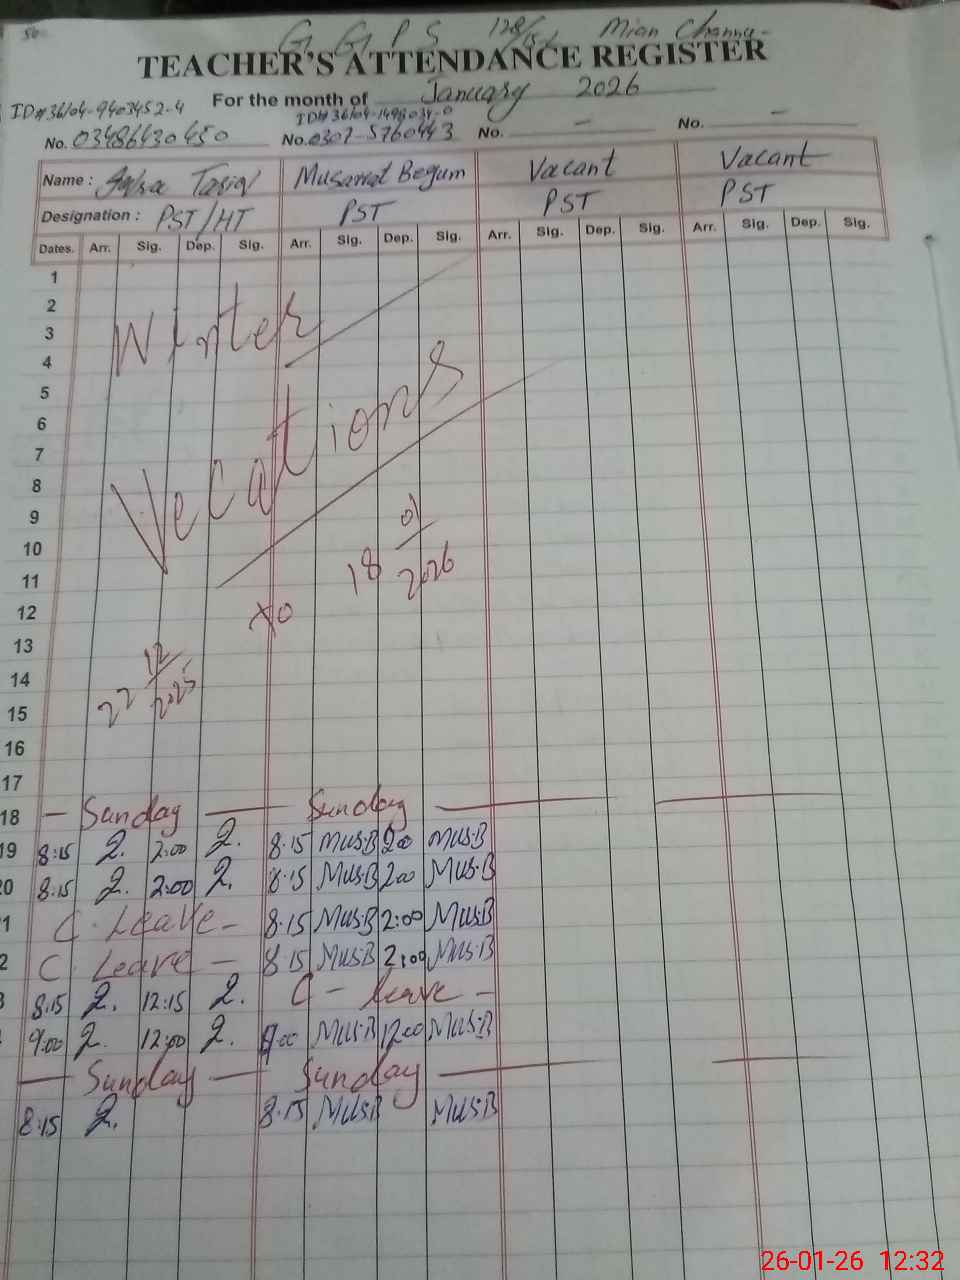 50
G G P S 128/15L Mian Channu
TEACHER'S ATTENDANCE REGISTER
For the month of January 2026
ID# 36104-9403452-4 ID# 36104-1498034-0
No. 03486430450 No. 0307-5760443 No. - No. -
Name : Tariq Musarrat Begum Vacant Vacant
Designation : PST/HT PST PST PST
Dates. Arr. Sig. Dep. Sig. Arr. Sig. Dep. Sig. Arr. Sig. Dep. Sig. Arr. Sig. Dep. Sig.
1
2
3 Winter
4
5
6
7 Vecations
8
9
10
11
12
13
14
15
22 12/2025 to 18 01/2026
16
17
18 - Sunday - Sunday -
19 8:15 2. 2:00 2. 8.15 MUS.B 200 MUS.B
20 8:15 2. 2:00 2. 8.15 MUS.B 200 MUS.B
1 C. Leave - 8.15 MUS.B 2:00 MUS.B
2 C. Leave - 8.15 MUS.B 2:00 MUS.B
3 8:15 2. 12:15 2. C - leave -
9:00 2. 12:00 2. 9:00 MUS.B 12:00 MUS.B
- Sunday - Sunday -
8:15 2. 8.15 MUS.B MUS.B
26-01-26 12:32